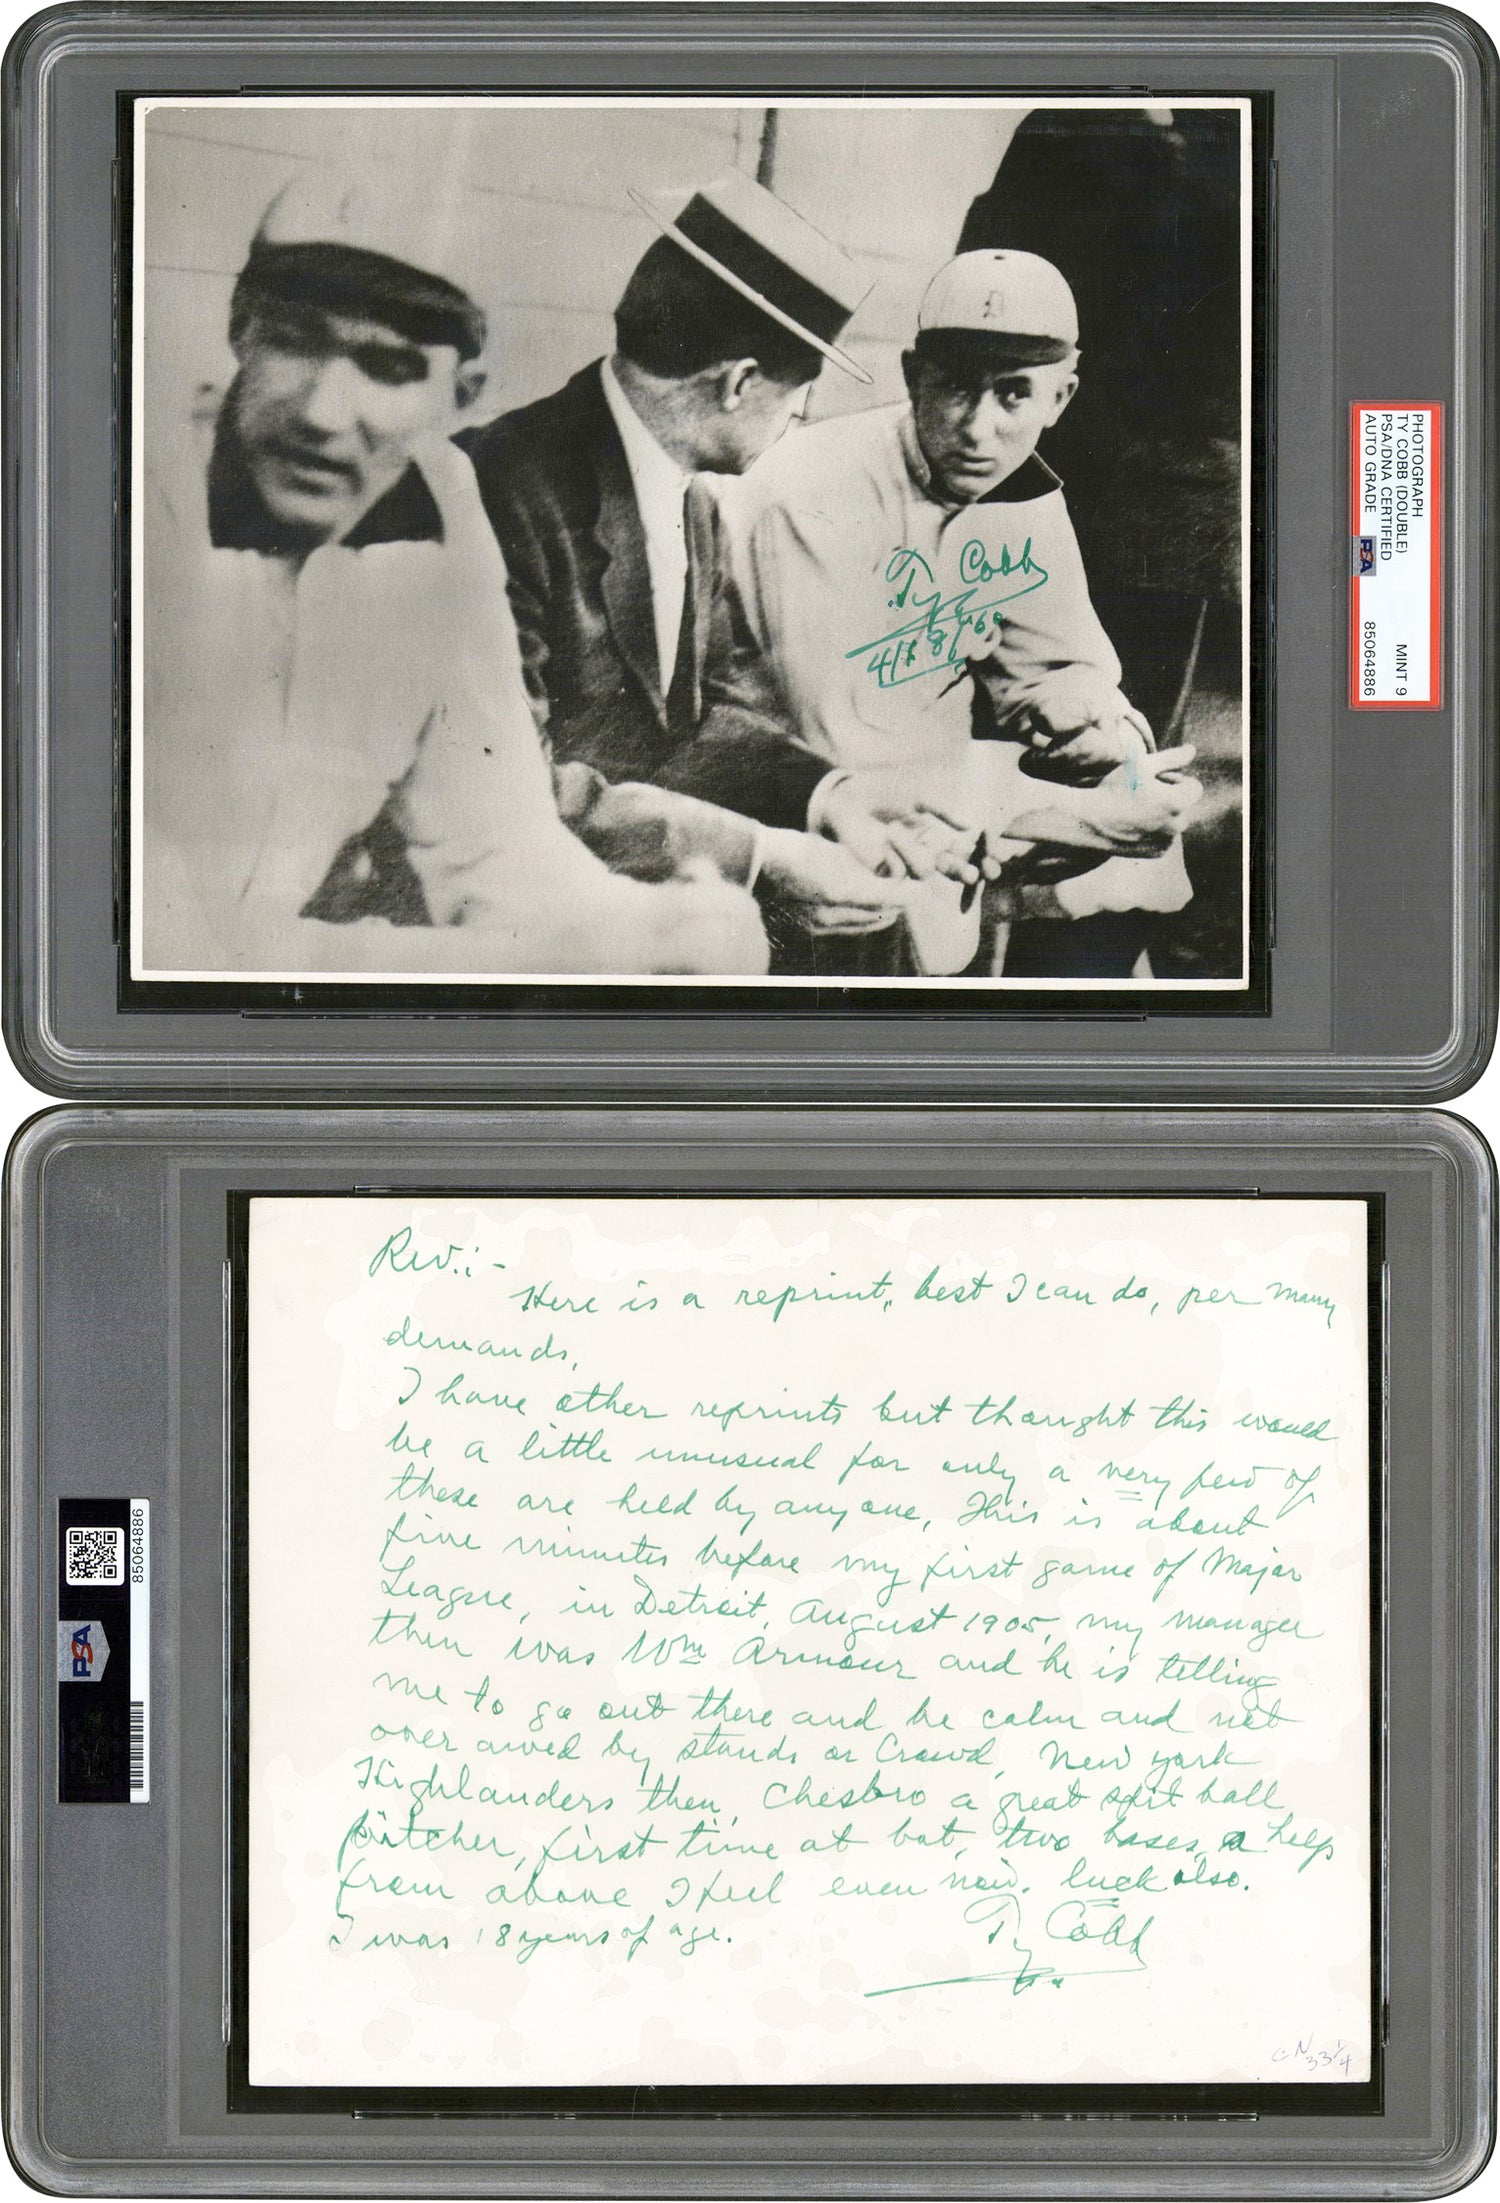 PHOTOGRAPH
TY COBB (DOUBLE)
PSA/DNA CERTIFIED
AUTO GRADE MINT 9
PSA 85064886
D
Ty Cobb
4/18/60
Rev.:-
Here is a reprint, best I can do, per many
demands,
I have other reprints but thought this would
be a little unusual for only a very few of
these are held by anyone, This is about
five minutes before my first game of Major
League, in Detroit, August 1905, my manager
then was Wm Armour and he is telling
me to go out there and be calm and not
over awed by stands or Crowd, New York
Highlanders then, Chesbro a great spit ball
pitcher, first time at bat, two bases, a help
from above I feel even now. luck also.
I was 18 years of age.
Ty Cobb
CN 33 1/4
85064886
PSA